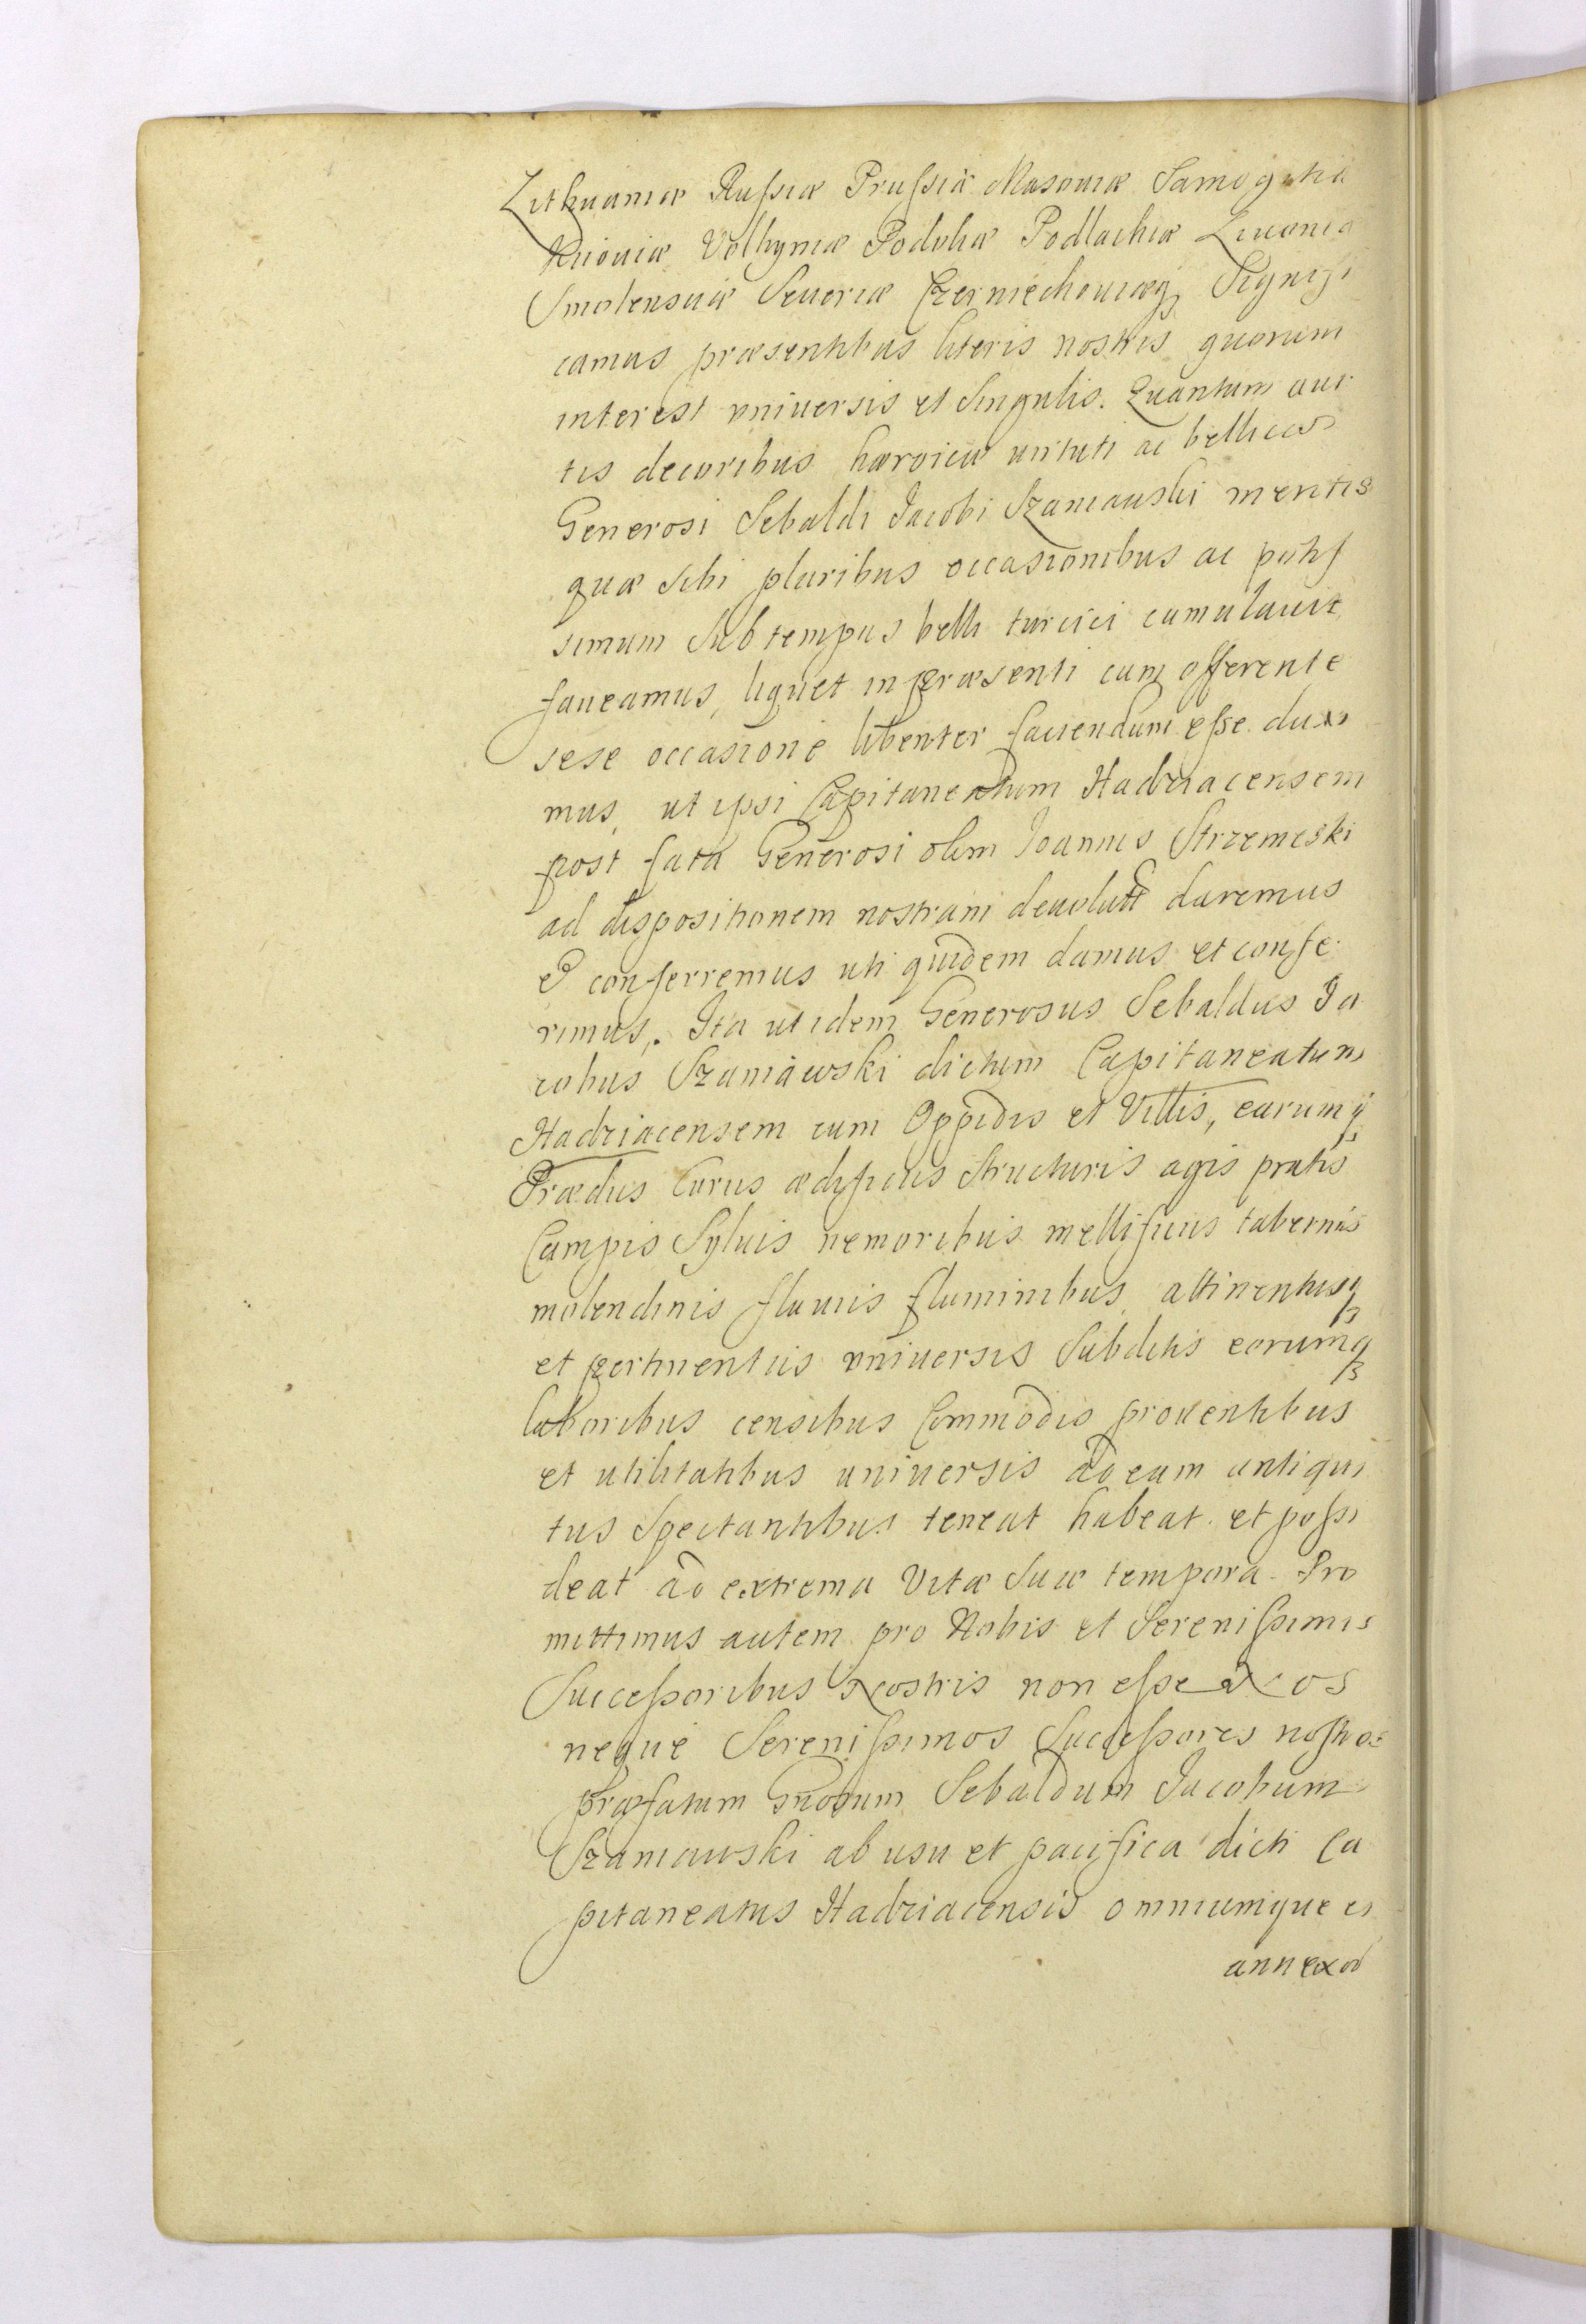 Lithuaniæ Russiæ Prussiæ Masoviæ Samogitiæ
Kiioviæ Volhyniæ Podoliæ Podlachiæ Livoniæ
Smolensciæ Severiæ Czerniechoviæq₃ Signifi
camus præsentibus literis nostris quorum
interest vniuersis et singulis. Quantum aui
tis decoribus hæroicæ uirtuti ac bellicis
Generosi Sebaldi Jacobi Szaniawski meritis
quæ sibi pluribus occasionibus ac potis
simum sub tempus belli turcici cumulauit
faueamus, liquet in præsenti cum offerente
sese occasione libenter faciendum esse duxi
mus, ut ipsi Capitaneatum Hadziacensem
post fata Generosi olim Joannis Strzemeski
ad dispositionem nostram deuolutū daremus
et conferremus uti quidem damus et confe
rimus,. Ita ut idem Generosus Sebaldus Ja
cobus Szaniawski dictum Capitaneatum
Hadziacensem cum Oppidis et Villis, earumq₃
Prædiis Curiis ædificiis structuris agis pratis
Campis Syluis nemoribus mellificiis tabernis
molendinis fluuiis fluminibus attinentiisq₃
et pertinentiis vniuersis Subditis eorumq₃
laboribus censibus Commodis prouentibus
et utilitatibus uniuersis ad eum antiqui
tus Spectantibus teneat habeat et possi
deat ad extrema Vitæ suæ tempora. Pro
mittimus autem pro Nobis et Serenissimis
Successoribus Nostris non esse Nos
neque Serenissimos Successores nostros
præfatum Gnosum Sebaldum Jacobum
Szaniawski ab usu et pacifica dicti Ca
pitaneatus Hadziacensis omniumque ei
annexor